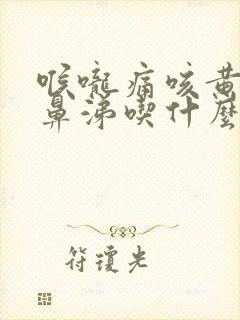 喉嚨痛咳黃
鼻涕喫什麼
符瓊光